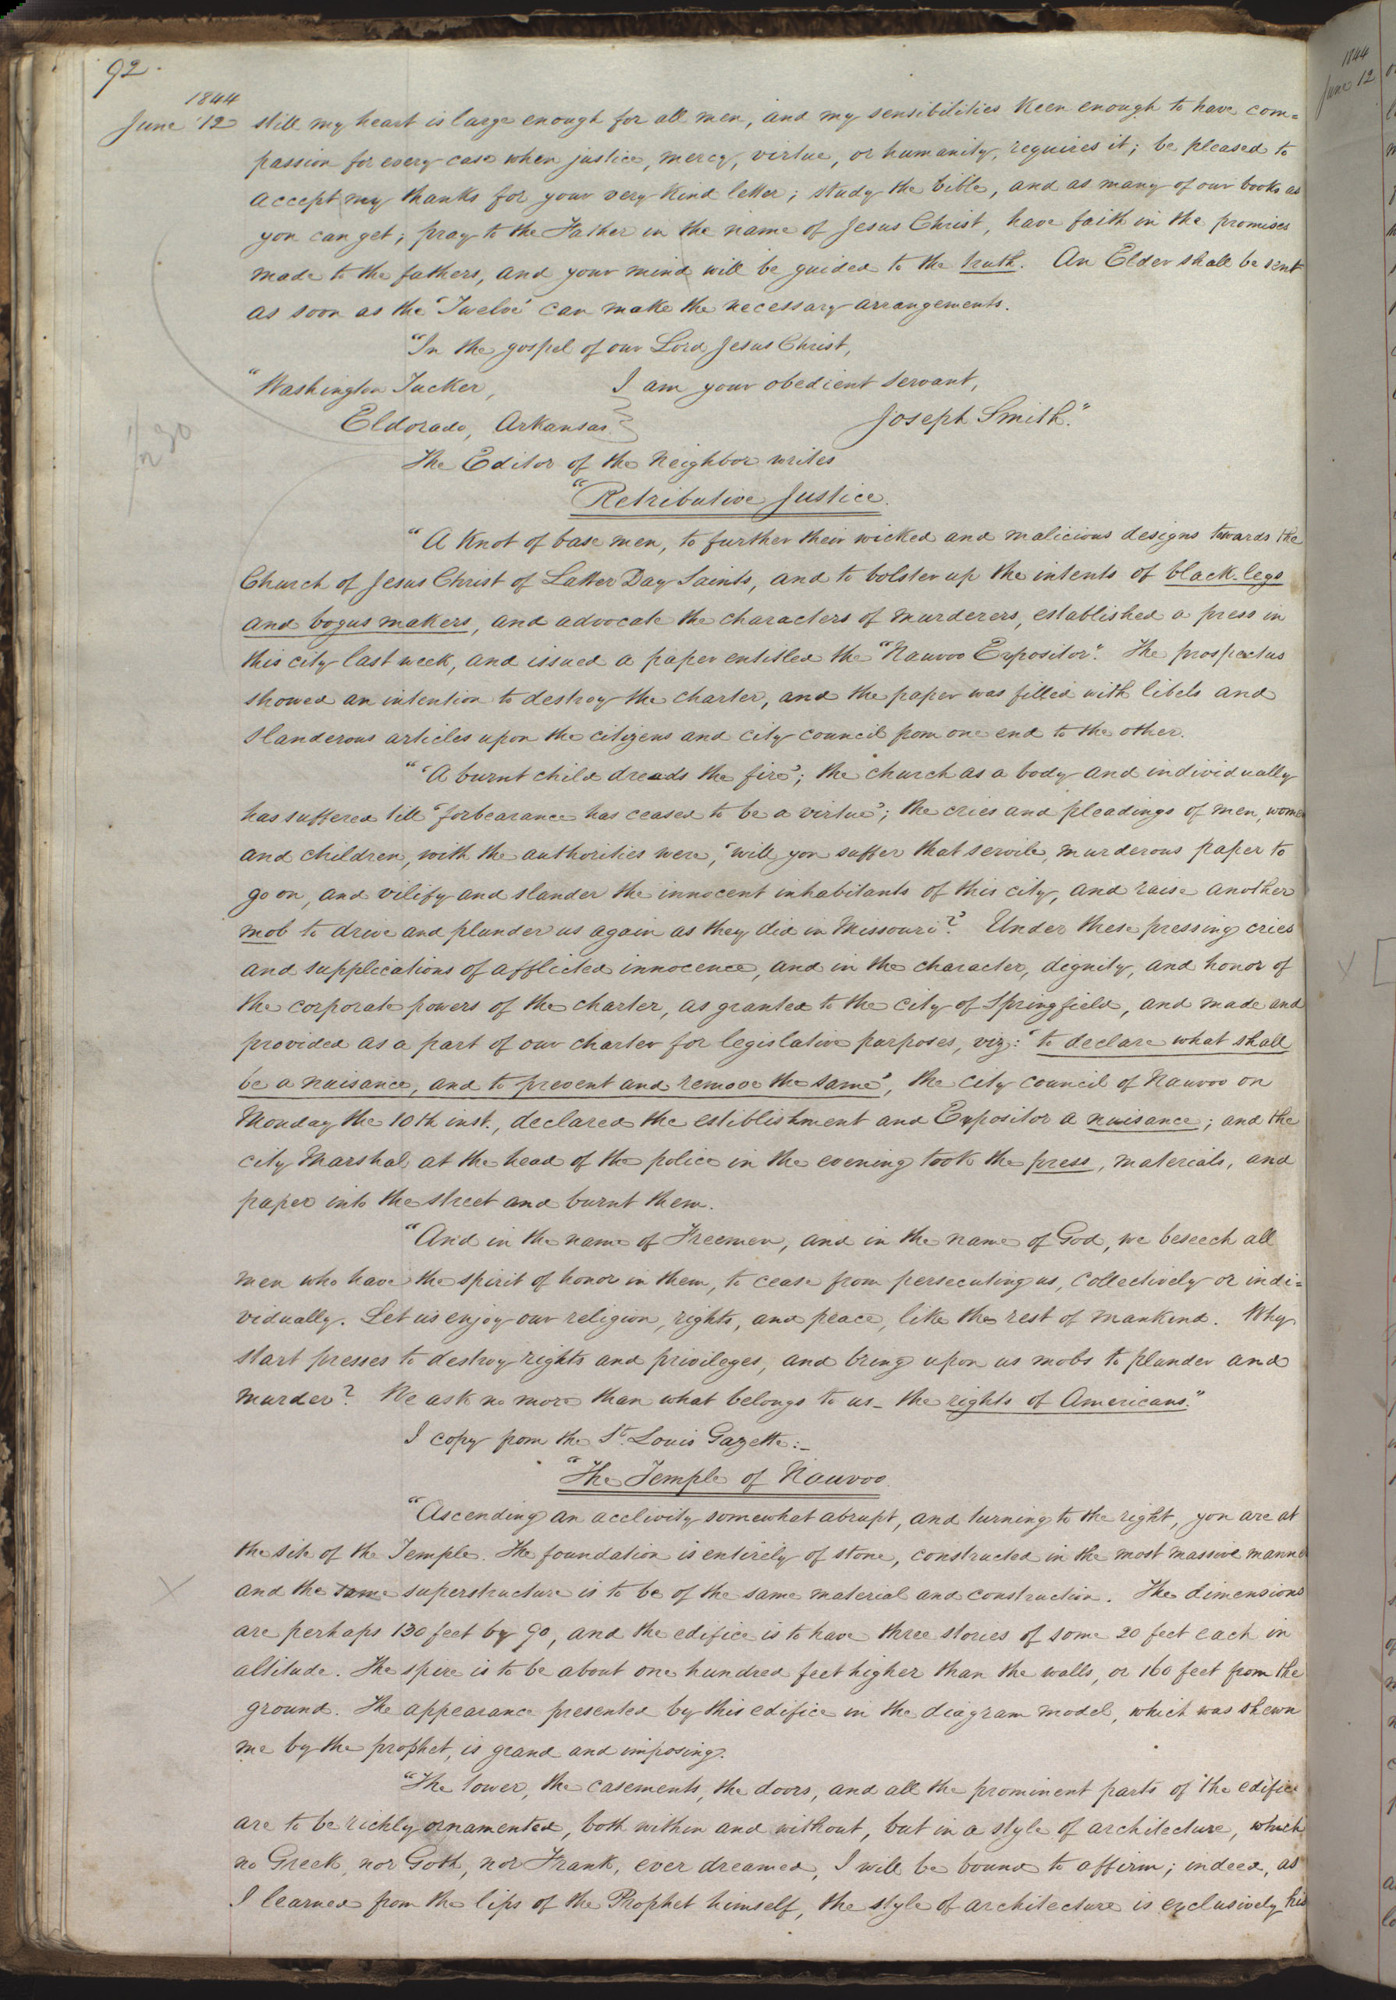 92.
1844
June 12 still my heart is large enough for all men, and my sensibilities keen enough to have com=
passion for every case when justice, mercy, virtue, or humanity, requires it; be pleased to
accept my thanks for your very kind letter; study the bible, and as many of our books as
you can get; pray to the Father in the name of Jesus Christ, have faith in the promises
made to the fathers, and your mind will be guided to the truth. An Elder shall be sent
as soon as the 'Twelve' can make the necessary arrangements.
"In the gospel of our Lord Jesus Christ,
"Washington Tucker, I am your obedient servant,
Eldorado, Arkansas. Joseph Smith."
The Editor of the Neighbor writes
"Retributive Justice.
"A knot of base men, to further their wicked and malicious designs towards the
Church of Jesus Christ of Latter Day Saints, and to bolster up the intents of black-legs
and bogus makers, and advocate the characters of murderers, established a press in
this city last week, and issued a paper entitled the "Nauvoo Expositor". The prospectus
showed an intention to destroy the charter, and the paper was filled with libels and
slanderous articles upon the citizens and city council from one end to the other.
"'A burnt child dreads the fire'; the church as a body and individually
has suffered till 'forbearance has ceased to be a virtue'; the cries and pleadings of men, women
and children, with the authorities were, 'will you suffer that servile, murderous paper to
go on, and vilify and slander the innocent inhabitants of this city, and raise another
mob to drive and plunder us again as they did in Missouri?' Under these pressing cries
and supplications of afflicted innocence, and in the character, dignity, and honor of
the corporate powers of the charter, as granted to the city of Springfield, and made and
provided as a part of our charter for legislative purposes, viz: 'to declare what shall
be a nuisance, and to prevent and remove the same', the city council of Nauvoo on
Monday the 10th inst., declared the establishment and Expositor a nuisance; and the
city Marshal, at the head of the police in the evening took the press, materials, and
paper into the street and burnt them.
"And in the name of Freemen, and in the name of God, we beseech all
men who have the spirit of honor in them, to cease from persecuting us, collectively or indi=
vidually. Let us enjoy our religion, rights, and peace, like the rest of mankind. Why
start presses to destroy rights and privileges, and bring upon us mobs to plunder and
murder? We ask no more than what belongs to us - the rights of Americans."
I copy from the St. Louis Gazette:-
"The Temple of Nauvoo.
"Ascending an acclivity somewhat abrupt, and turning to the right, you are at
the site of the Temple. The foundation is entirely of stone, constructed in the most massive manner
and the same superstructure is to be of the same material and construction. The dimensions
are perhaps 130 feet by 90, and the edifice is to have three stories of some 20 feet each in
altitude. The spire is to be about one hundred feet higher than the walls, or 160 feet from the
ground. The appearance presented by this edifice in the diagram model, which was shewn
me by the prophet, is grand and imposing.
"The tower, the casements, the doors, and all the prominent parts of the edifice
are to be richly ornamented, both within and without, but in a style of architecture, which
no Greek, nor Goth, nor Frank, ever dreamed, I will be bound to affirm; indeed, as
I learned from the lips of the Prophet himself, the style of architecture is exclusively his
1844
June 12